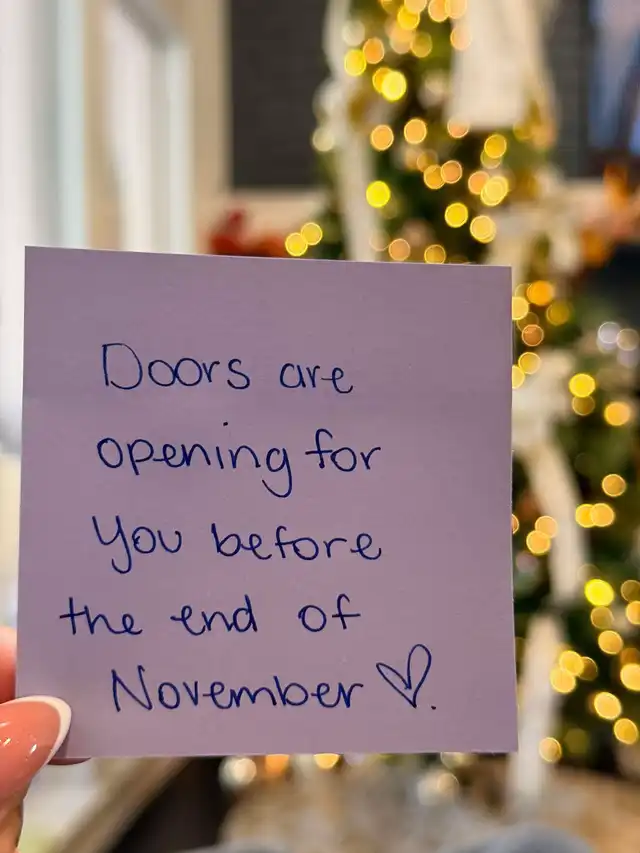 Doors are
opening for
you before
the end of
November ♡.